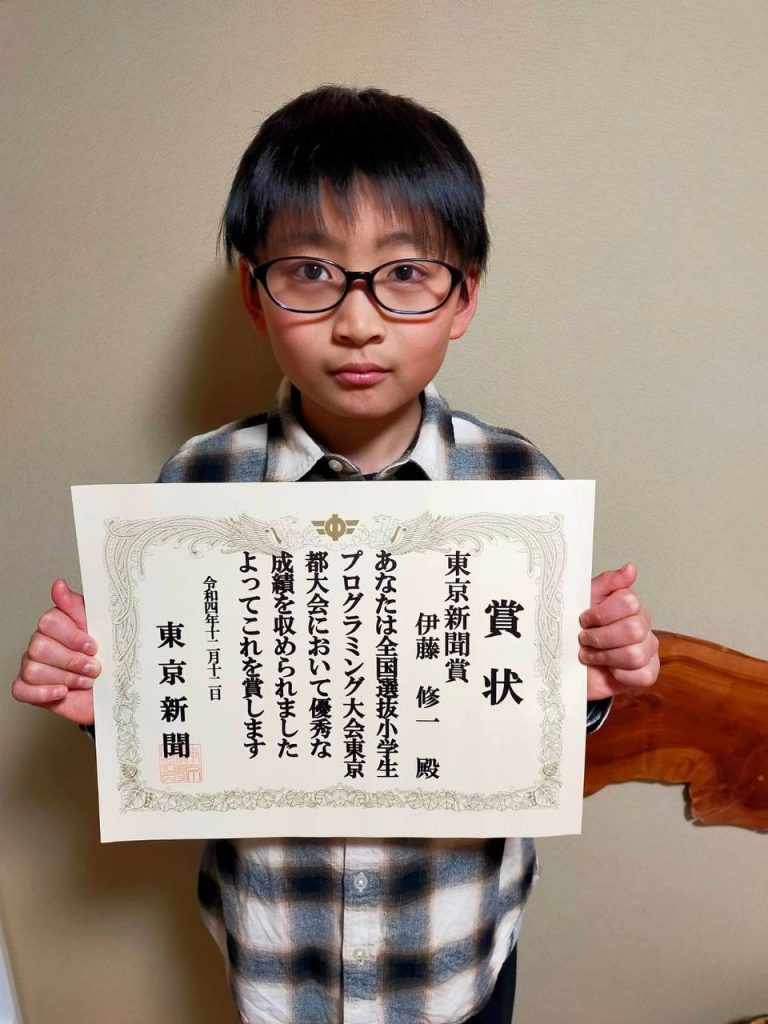 賞状
東京新聞賞
伊藤 修一 殿
あなたは全国選抜小学生
プログラミング大会東京
都大会において優秀な
成績を収められました
よってこれを賞します
令和四年十二月十二日
東京新聞